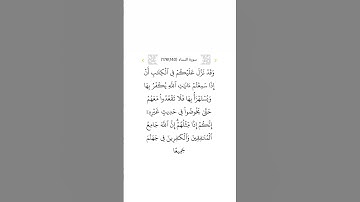 سورة النساء (١٧٦/١٤٠)
وَقَدْ نَزَّلَ عَلَيْكُمْ فِى ٱلْكِتَٰبِ أَنْ
إِذَا سَمِعْتُمْ ءَايَٰتِ ٱللَّهِ يُكْفَرُ بِهَا
وَيُسْتَهْزَأُ بِهَا فَلَا تَقْعُدُوا۟ مَعَهُمْ
حَتَّىٰ يَخُوضُوا۟ فِى حَدِيثٍ غَيْرِهِۦٓ ۚ
إِنَّكُمْ إِذًا مِّثْلُهُمْ ۗ إِنَّ ٱللَّهَ جَامِعُ
ٱلْمُنَٰفِقِينَ وَٱلْكَٰفِرِينَ فِى جَهَنَّمَ
جَمِيعًا